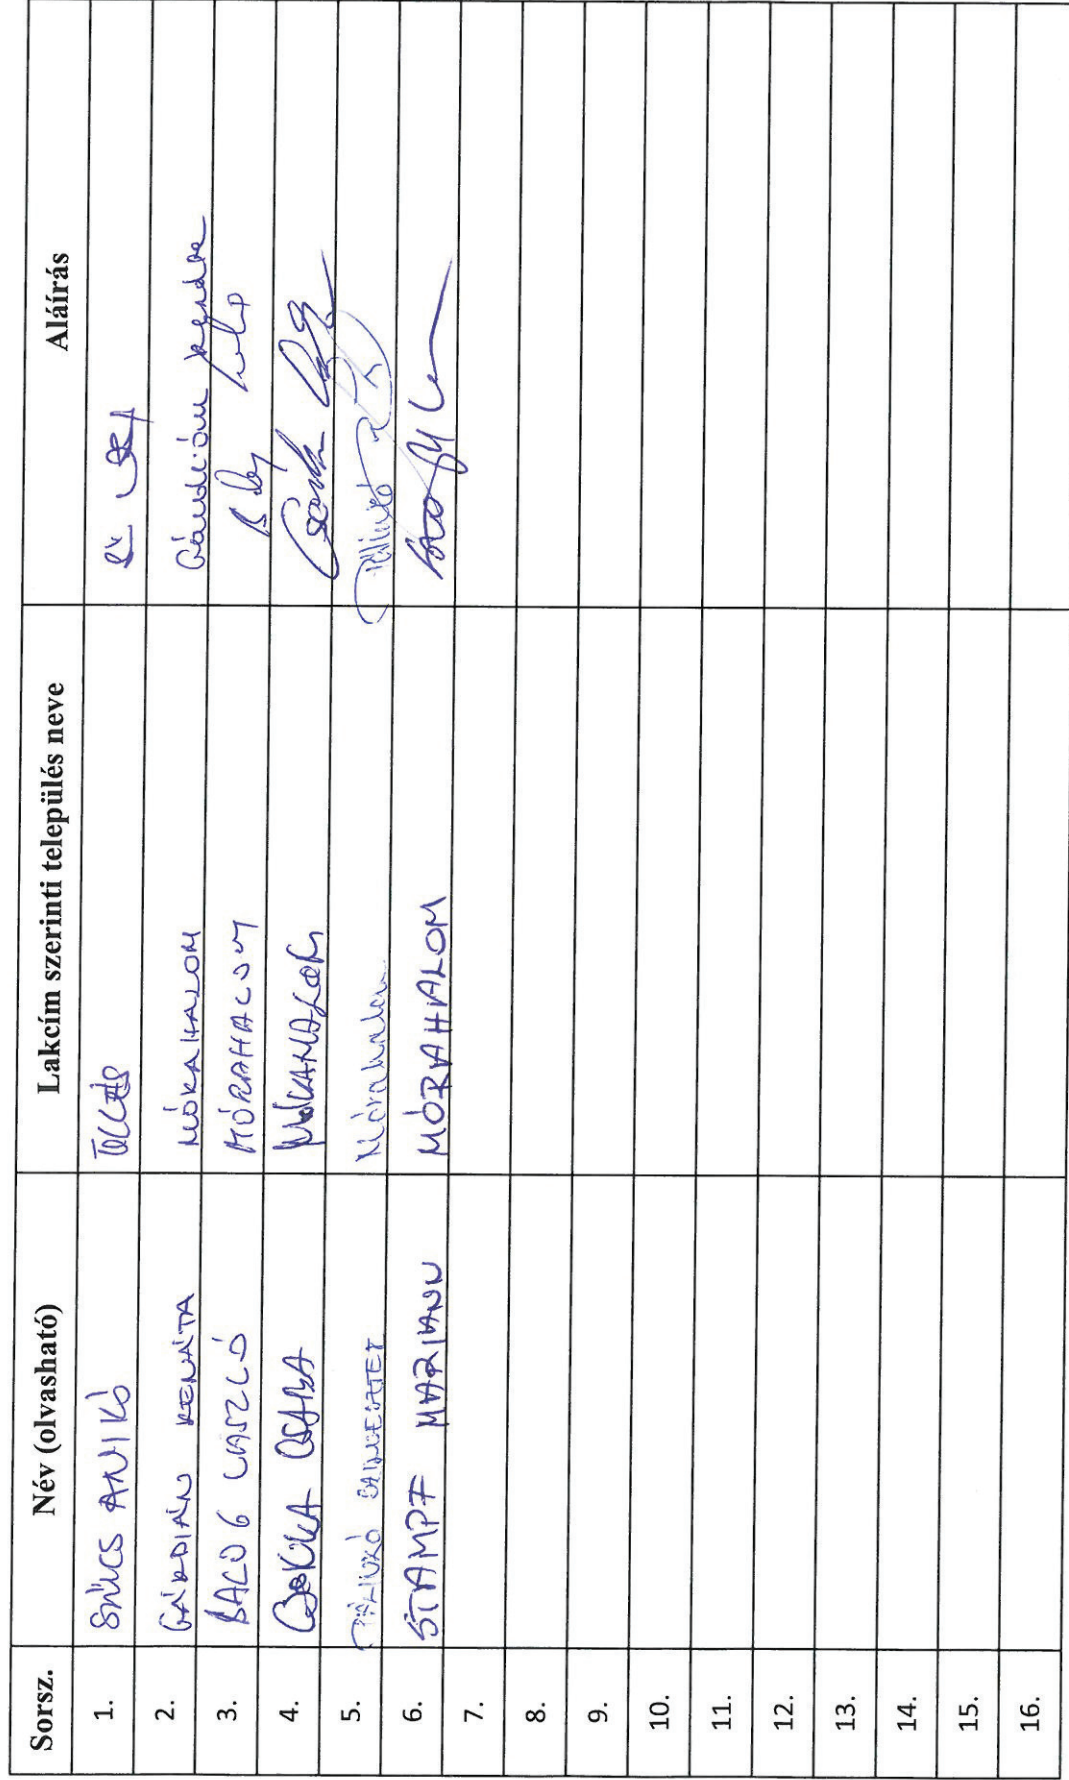 Sorsz. Név (olvasható) Lakcím szerinti település neve Aláírás
1. SZŰCS ANIKÓ ÜLLÉS
2. GÁRDIÁN RENÁTA MÓRAHALOM Gárdián Renáta
3. BALOG LÁSZLÓ MÓRAHALOM
4. CSABA MÓRAHALOM
5. PÁLINKÓ Mórahalom Pálinkó
6. STAMPF MARIANN MÓRAHALOM
7.
8.
9.
10.
11.
12.
13.
14.
15.
16.